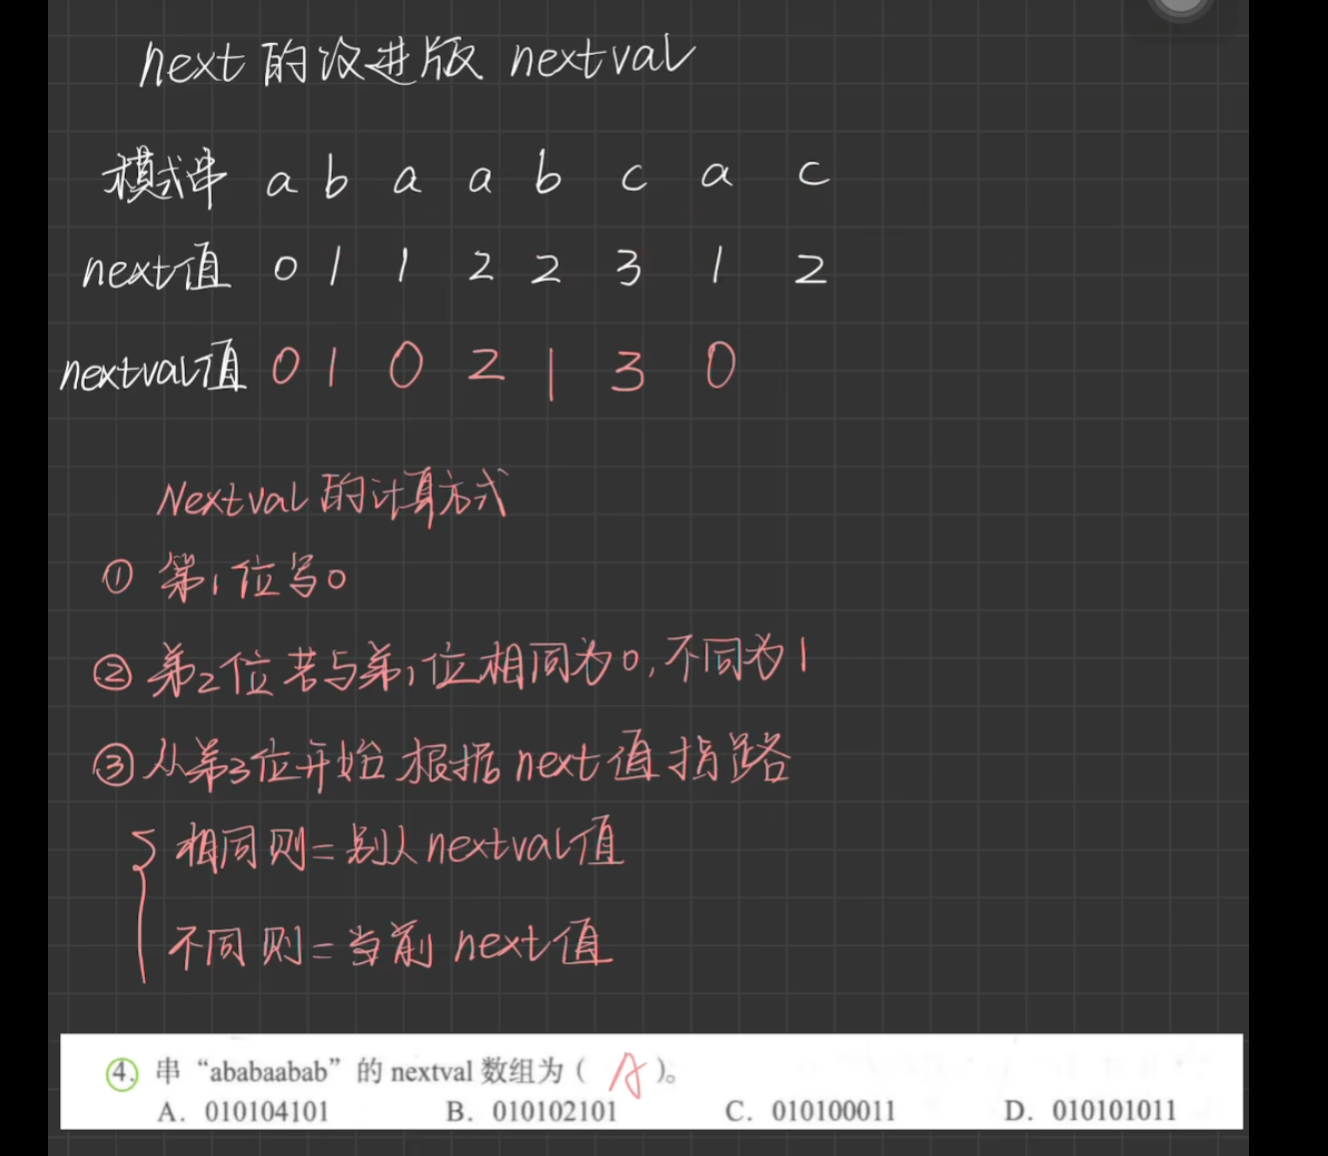 next的改进版 nextval
模式串 a b a a b c a c
next值 0 1 1 2 2 3 1 2
nextval值 0 1 0 2 1 3 0
Nextval的计算方式
① 第1位写0
② 第2位若与第1位相同为0,不同为1
③ 从第3位开始 根据next值指路
相同则=别人nextval值
不同则=当前next值
4. 串“ababaabab”的 nextval 数组为( A )。
A. 010104101 B. 010102101 C. 010100011 D. 010101011